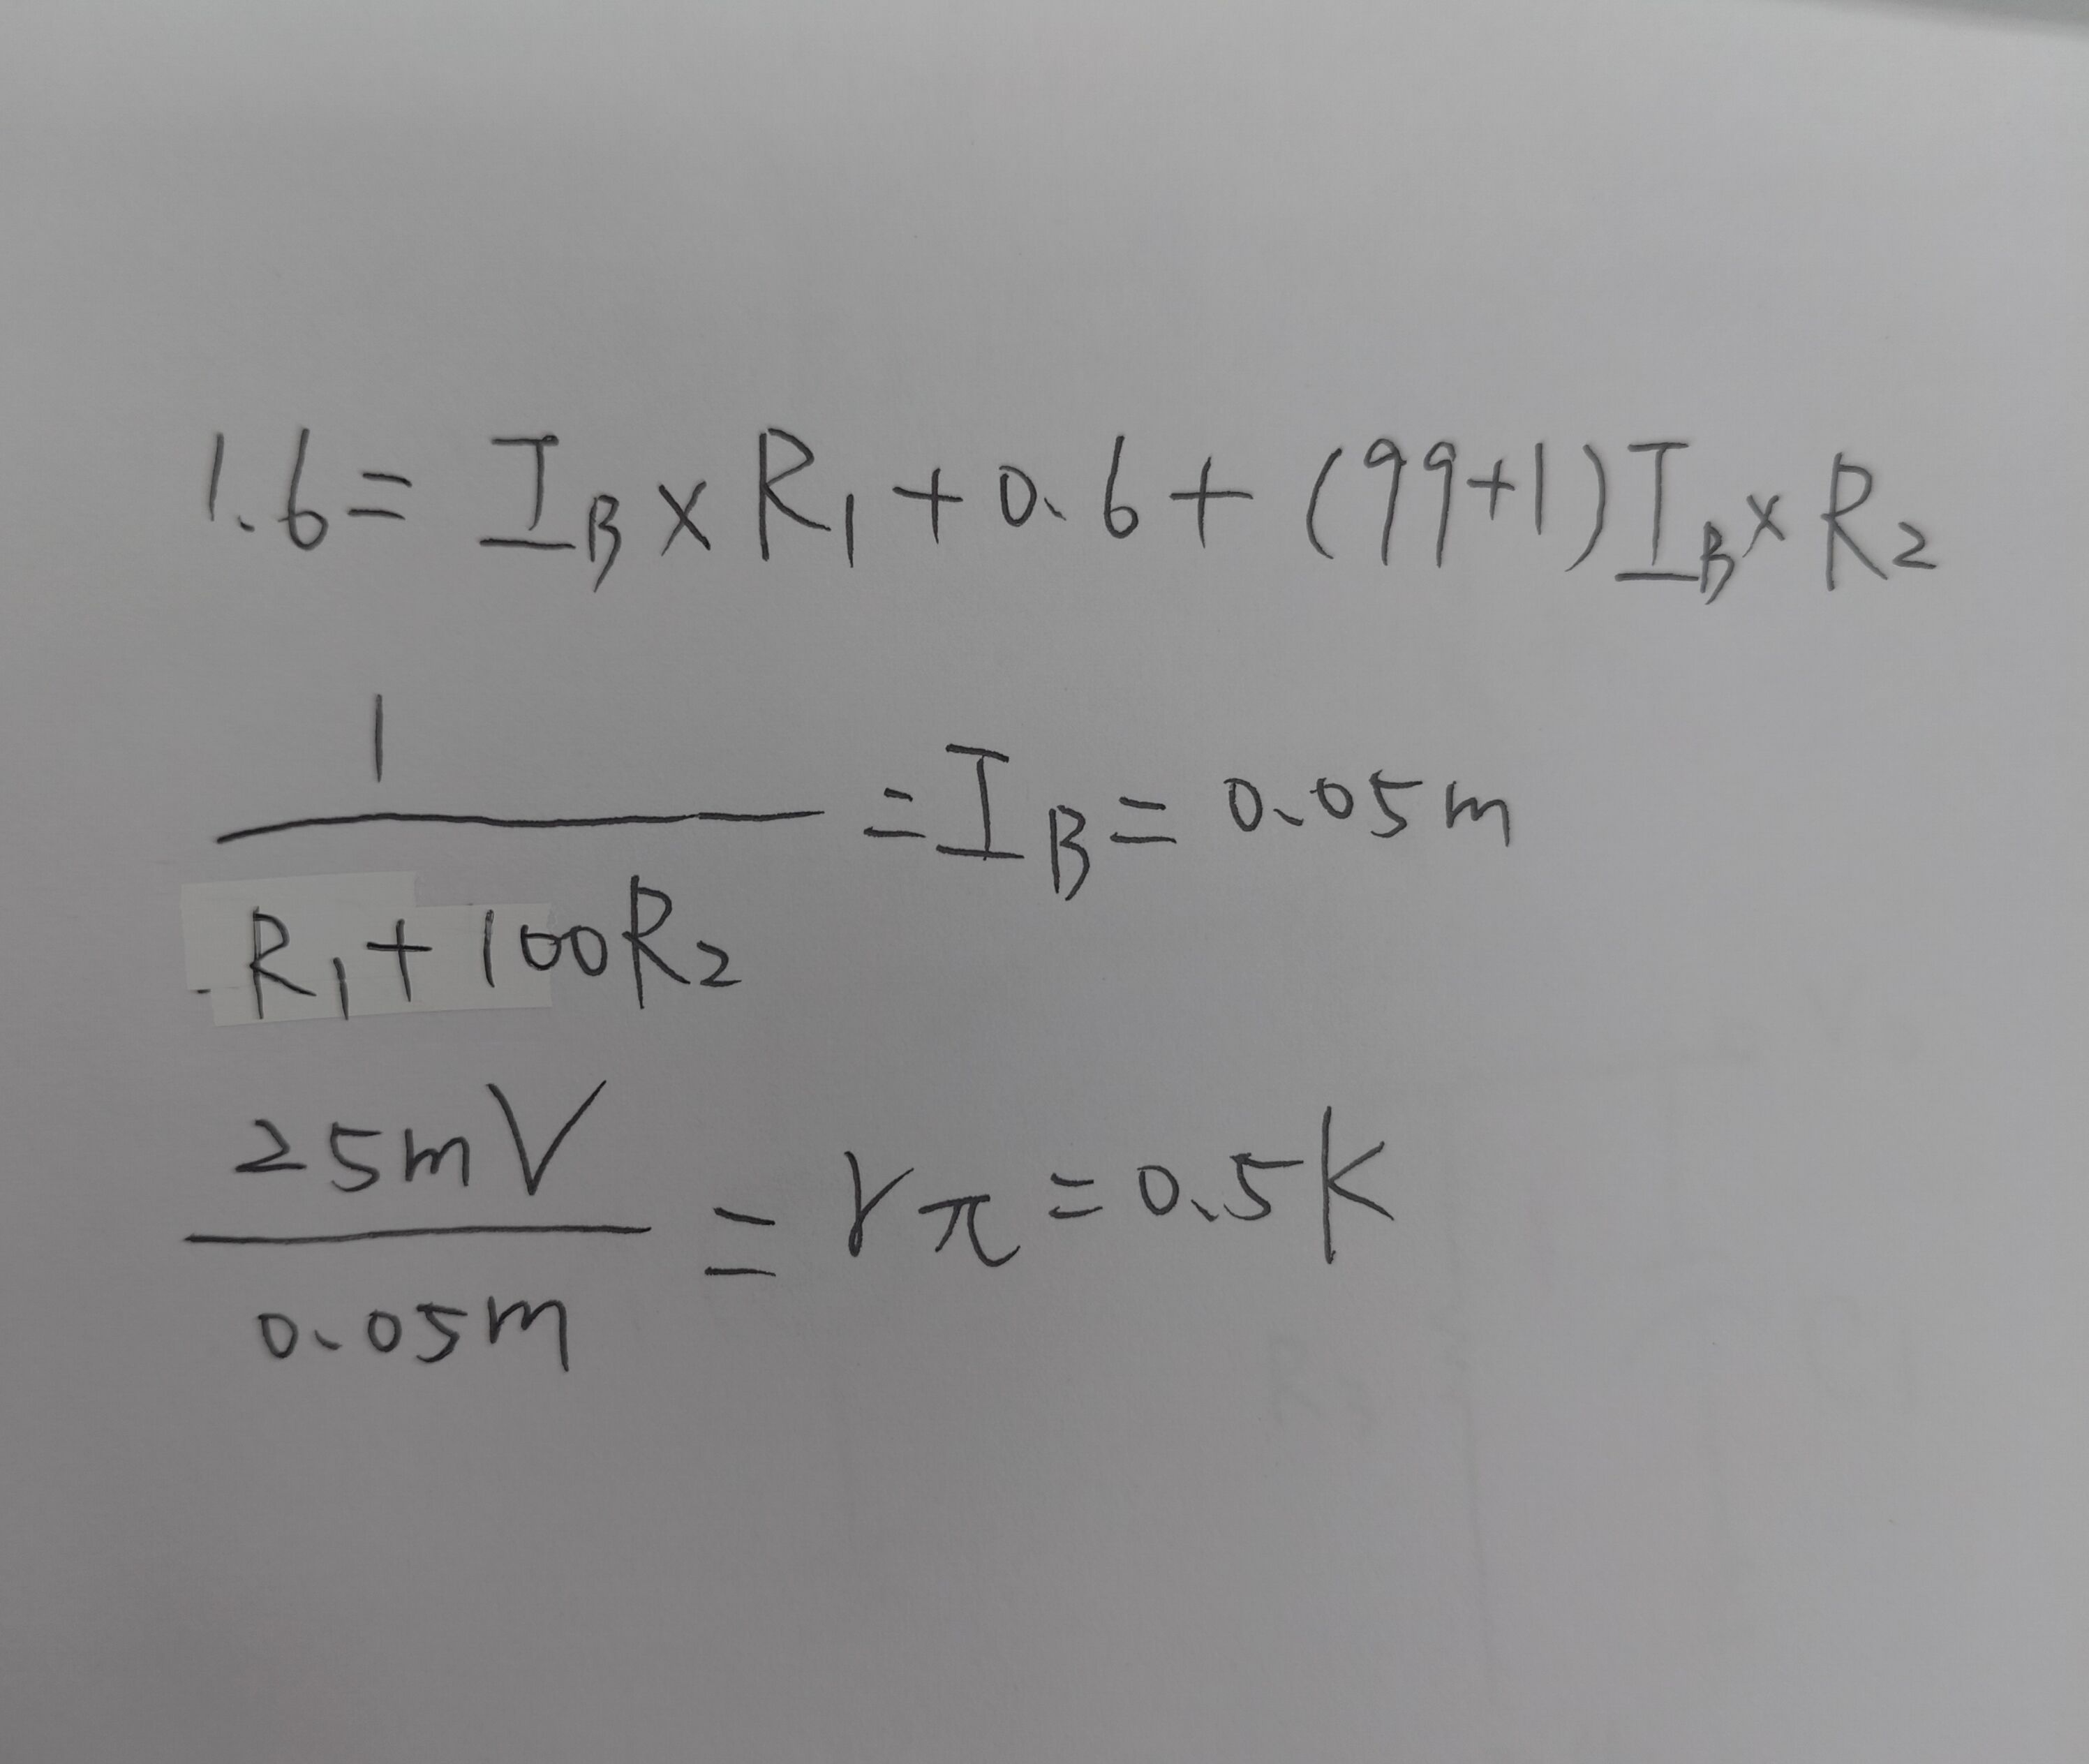 1.6 = I_B × R_1 + 0.6 + (99+1) I_B × R_2
1 / (R_1 + 100R_2) = I_B = 0.05m
25mV / 0.05m = r_π = 0.5K